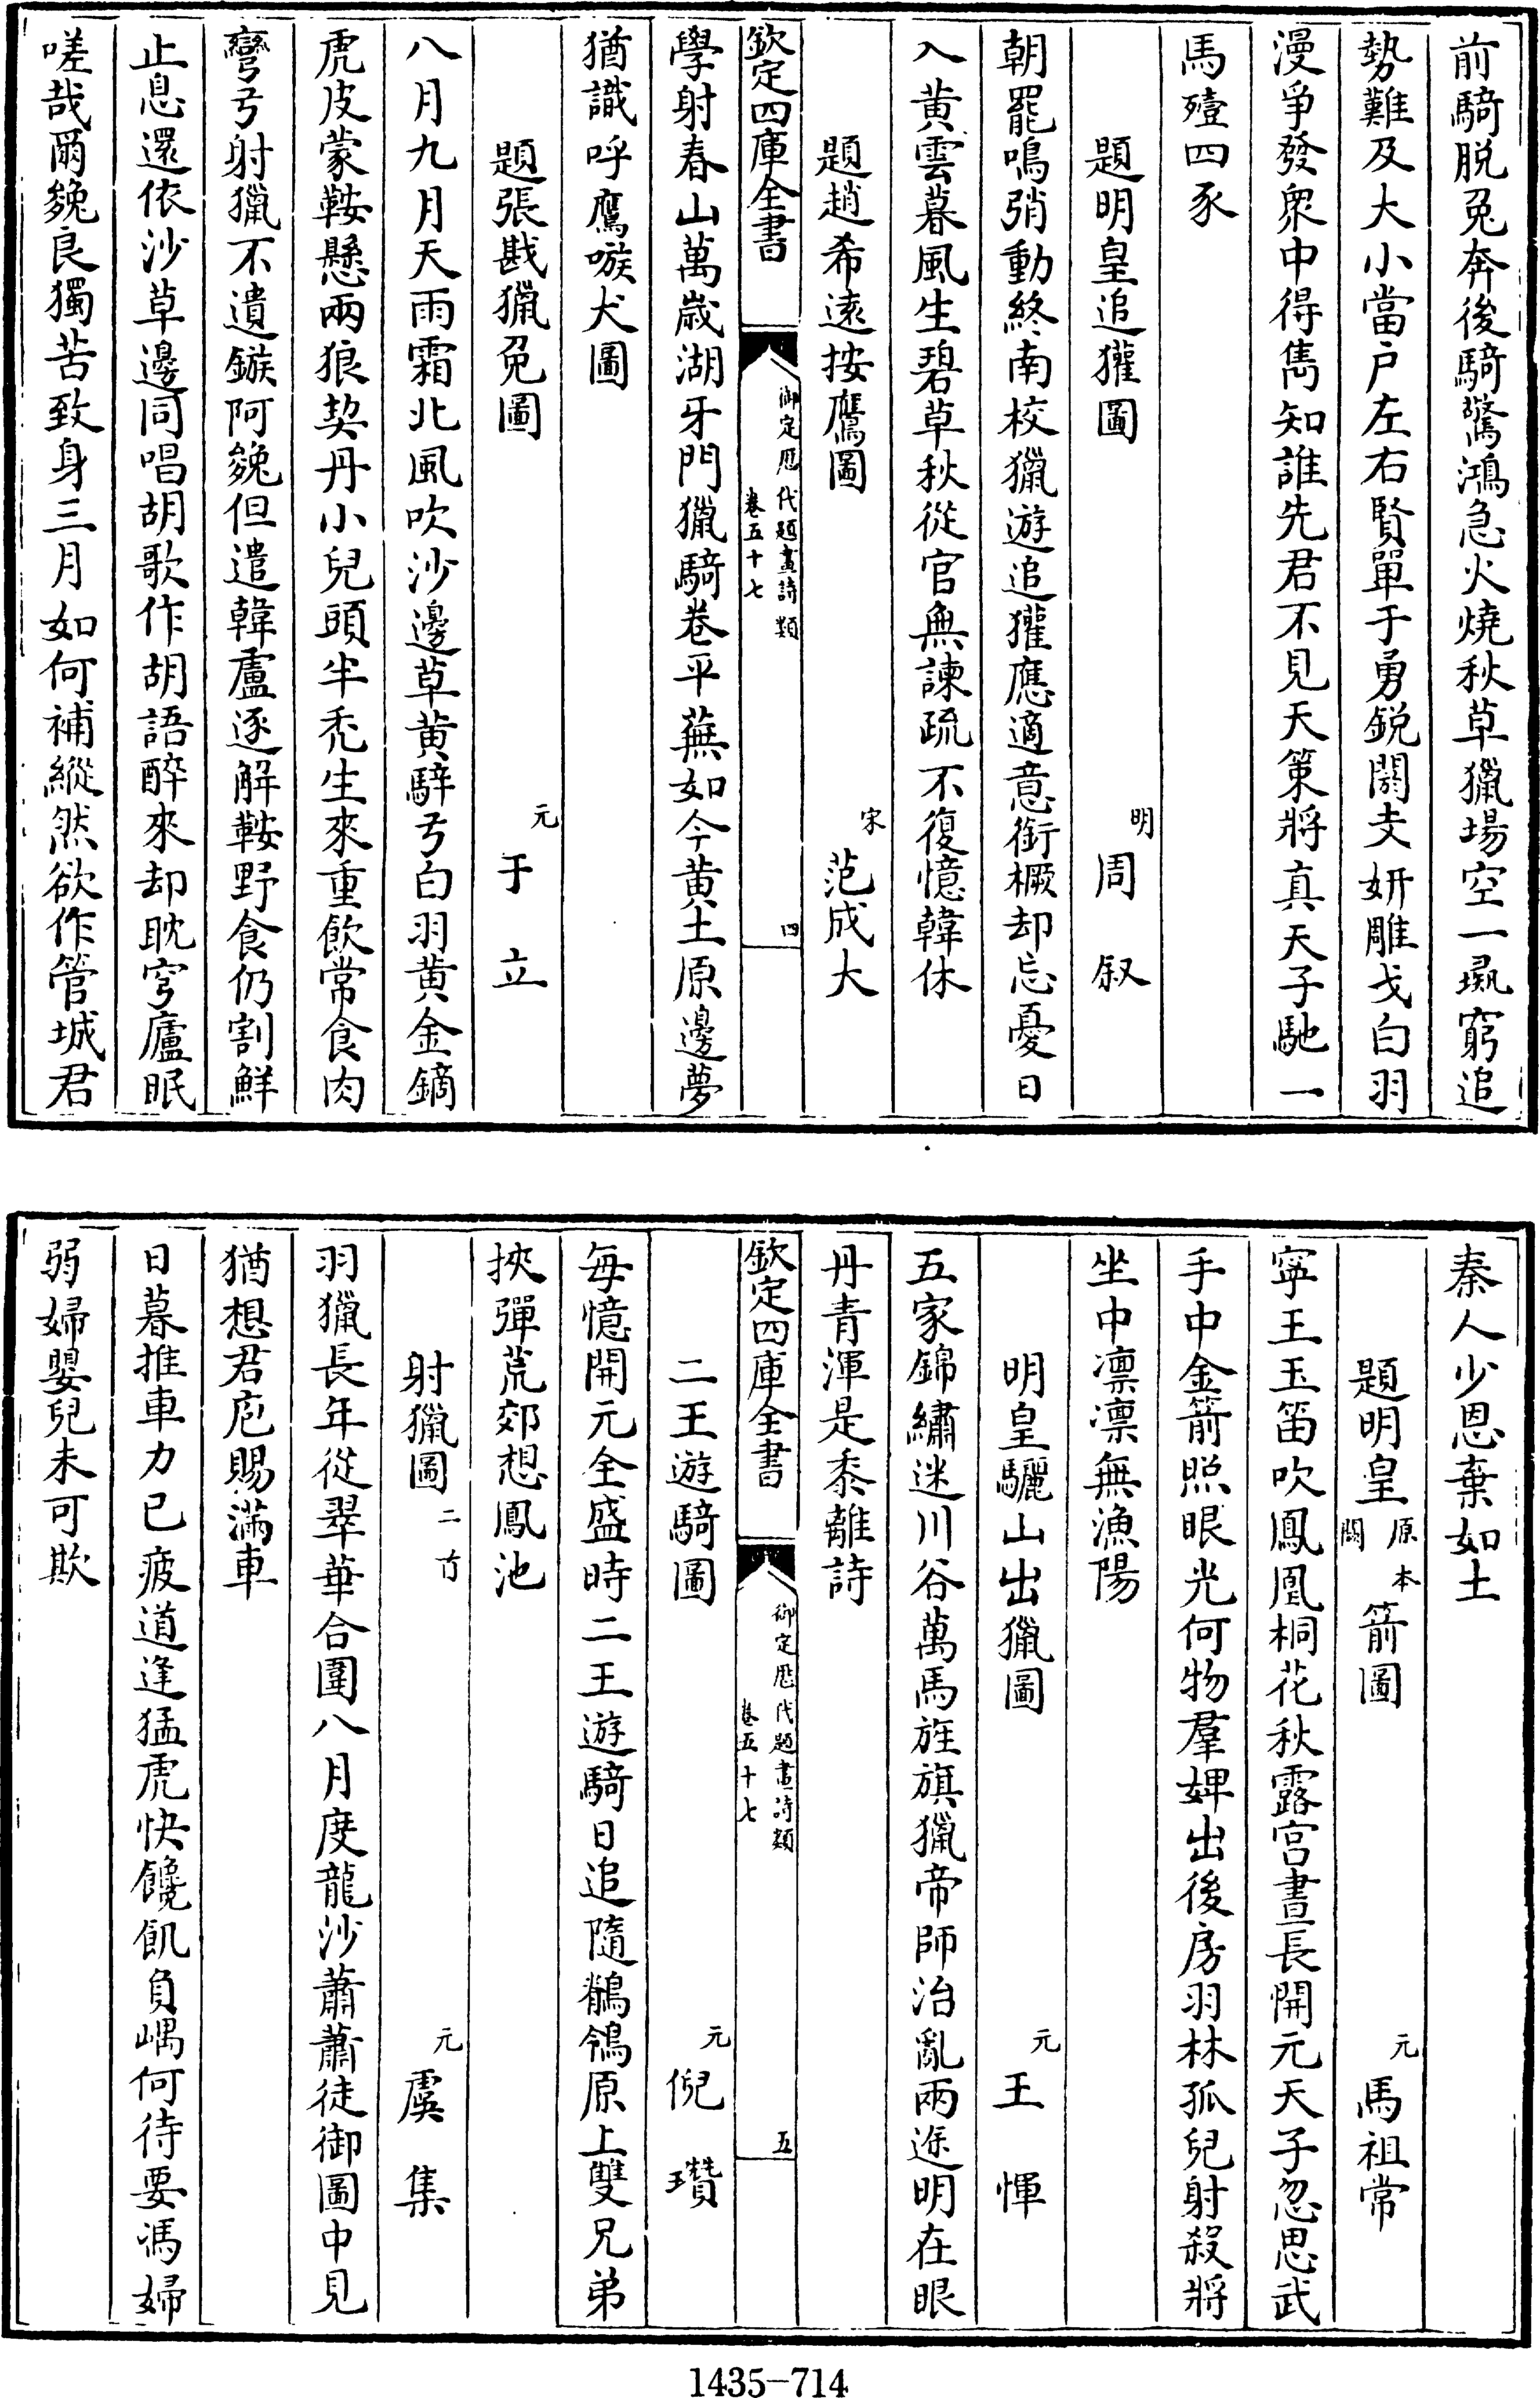 前騎脱兔奔後騎驚鴻急火燒秋草獵場空一㶡窮追
勢難及大小當户左右賢單于勇鋭閼支妍雕戈白羽
漫爭發衆中得雋知誰先君不見天策將真天子馳一
馬殪四豕
題明皇追獾圖 明 周叙
朝罷鳴弰動終南校獵遊追獾應適意銜橛却忘憂日
入黄雲暮風生碧草秋從官無諫疏不復憶韓休
題趙希遠按鷹圖 宋 范成大
欽定四庫全書 御定厯代題畫詩類 卷五十七 四
學射春山萬歲湖牙門獵騎卷平蕪如今黄土原邊夢
猶識呼鷹嗾犬圖
題張戡獵兔圖 元 于立
八月九月天雨霜北風吹沙邊草黄騂弓白羽黄金鏑
虎皮蒙鞍懸兩狼契丹小兒頭半秃生來重飲常食肉
彎弓射獵不遺鏃阿㕙但遣韓盧逐解鞍野食仍割鮮
止息還依沙草邊同唱胡歌作胡語醉來却耽穹廬眠
嗟哉爾㕙良獨苦致身三月如何補縱然欲作管城君
秦人少恩棄如土
題明皇原本闕箭圖 元 馬祖常
寧王玉笛吹鳳凰桐花秋露宫晝長開元天子忽思武
手中金箭照眼光何物羣婢出後房羽林孤兒射殺將
坐中凛凛無漁陽
明皇驪山出獵圖 元 王惲
五家錦繡迷川谷萬馬旌旗獵帝師治亂兩途明在眼
丹青渾是黍離詩
欽定四庫全書 御定厯代題畫詩類 卷五十七 五
二王遊騎圖 元 倪瓚
每憶開元全盛時二王遊騎日追隨鶺鴒原上雙兄弟
挾彈荒郊想鳳池
射獵圖二首 元 虞集
羽獵長年從翠華合圍八月度龍沙蕭蕭徒御圖中見
猶想君庖賜滿車
日暮推車力已疲道逢猛虎快饞飢負嵎何待要馮婦
弱婦嬰兒未可欺
1435-714